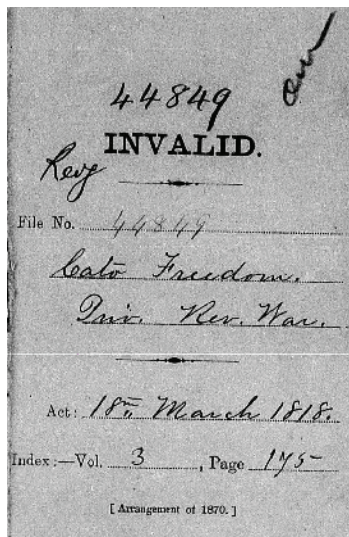 44849
INVALID.
File No. 44849
Cato Freedom.
Priv. Rev. War.
Act: 18th March 1818.
Index:—Vol. 3, Page 175
[ Arrangement of 1870. ]